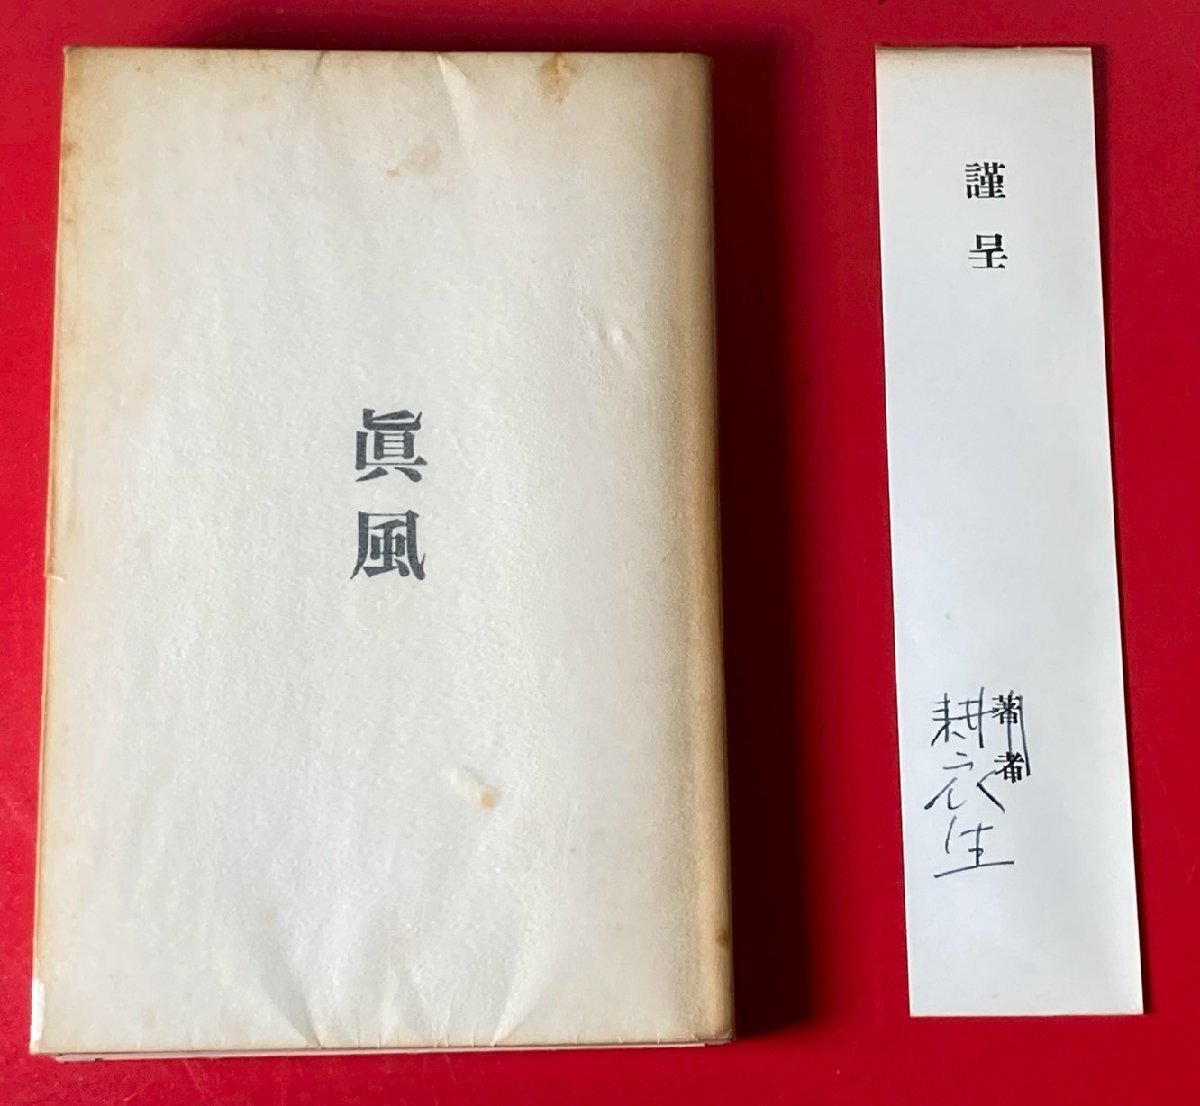 眞風
謹呈
著者
耕衣生